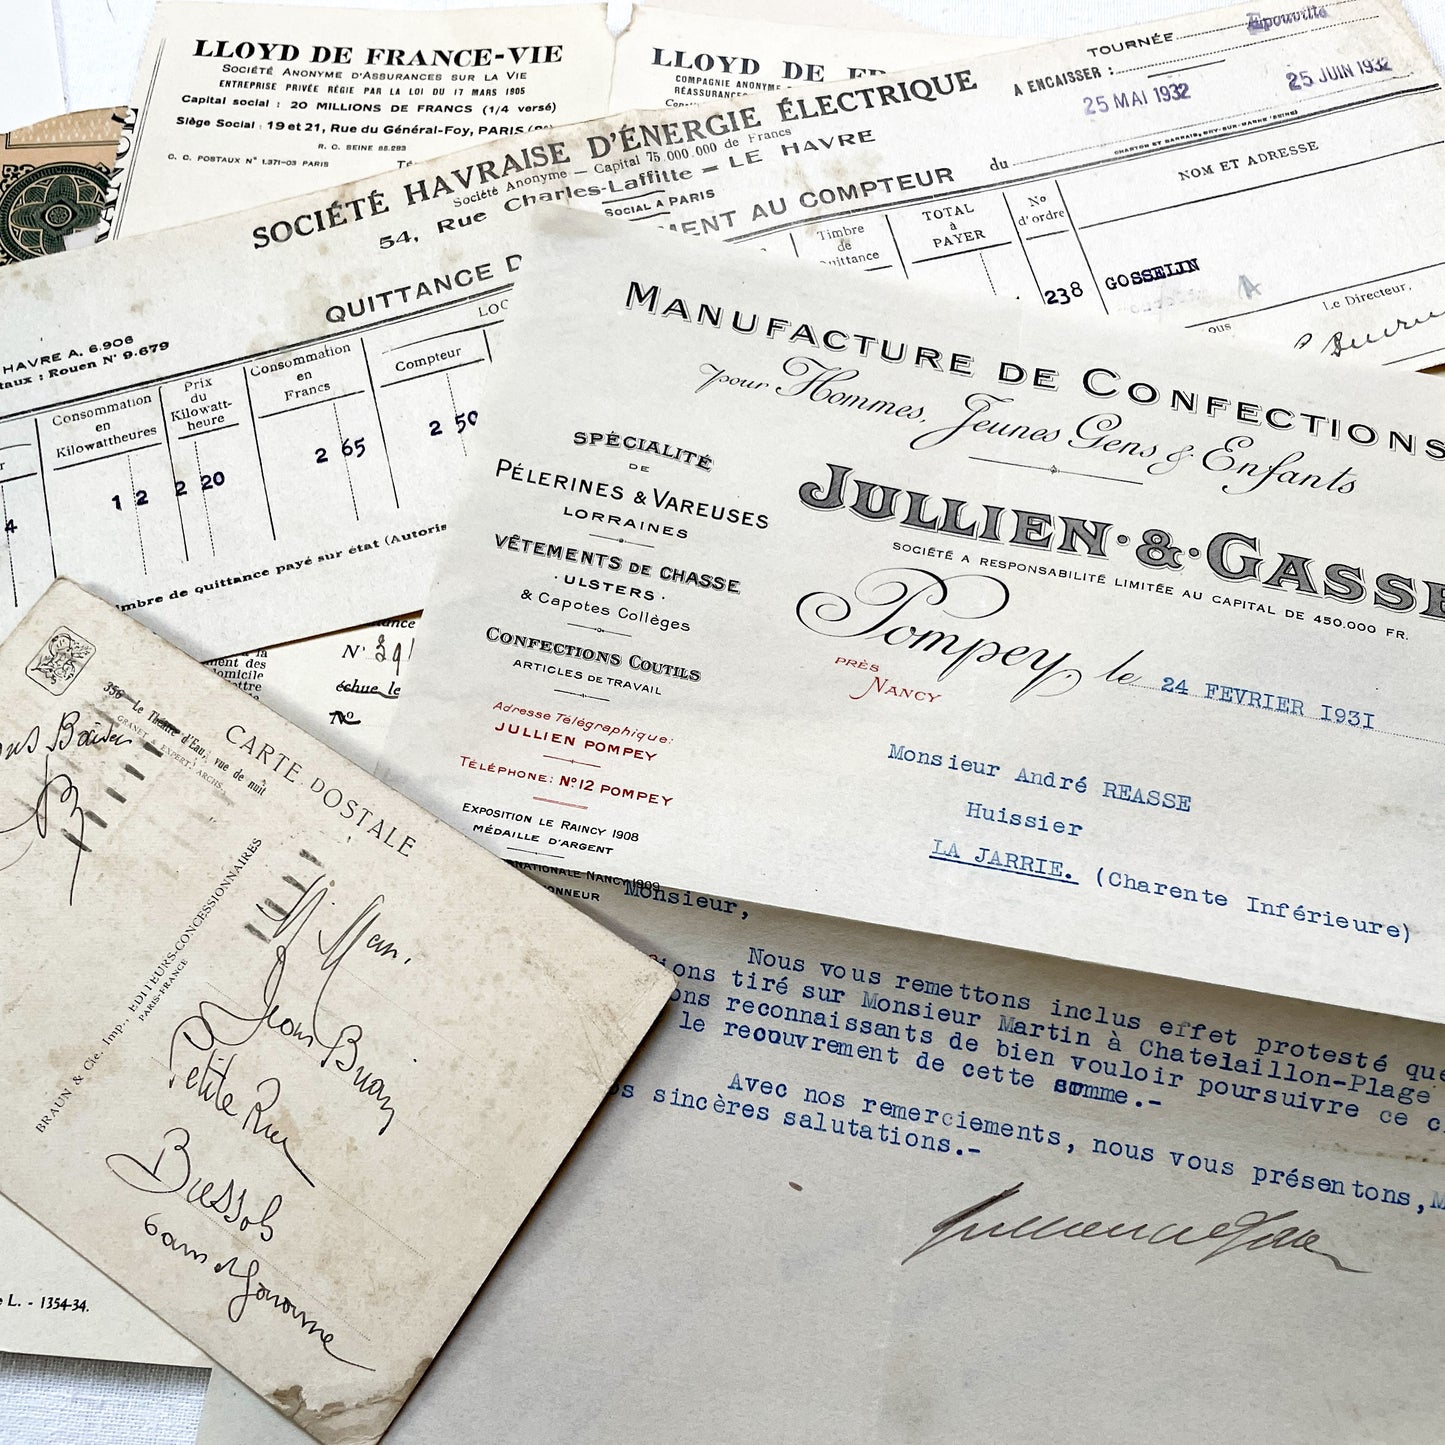 LLOYD DE FRANCE-VIE
SOCIÉTÉ ANONYME D'ASSURANCES SUR LA VIE
ENTREPRISE PRIVÉE RÉGIE PAR LA LOI DU 17 MARS 1905
Capital social : 20 MILLIONS DE FRANCS (1/4 versé)
Siège Social : 19 et 21, Rue du Général-Foy, PARIS
R. C. SEINE 85.283
C. C. POSTAUX N° 1.371-03 PARIS
LLOYD DE FR
COMPAGNIE ANONYME
RÉASSURANCES
SOCIÉTÉ HAVRAISE D'ÉNERGIE ÉLECTRIQUE
Société Anonyme — Capital 75.000.000 de Francs
54, Rue Charles-Laffitte — LE HAVRE
SOCIAL A PARIS
TOURNÉE Epouville
A ENCAISSER :
25 MAI 1932
25 JUIN 1932
CHARTON ET BARRAIS, BRY-SUR-MARNE (SEINE)
QUITTANCE D
MENT AU COMPTEUR du
HAVRE A. 6.906
taux : Rouen N° 9.679
LOC
Consommation
en
Kilowattheures
Prix
du
Kilowatt-
heure
Consommation
en
Francs
Compteur
Timbre
de
quittance
TOTAL
à
PAYER
N°
d'ordre
NOM ET ADRESSE
4
1 2
2 20
2 65
2 50
238
GOSSELIN
ous
Le Directeur,
imbre de quittance payé sur état (Autoris
MANUFACTURE DE CONFECTIONS
pour Hommes, Jeunes Gens & Enfants
JULLIEN & GASSE
SOCIÉTÉ A RESPONSABILITÉ LIMITÉE AU CAPITAL DE 450.000 FR.
Pompey, le 24 FEVRIER 1931
PRÈS
NANCY
SPÉCIALITÉ
DE
PÉLERINES & VAREUSES
LORRAINES
VÊTEMENTS DE CHASSE
·ULSTERS·
& Capotes Collèges
CONFECTIONS COUTILS
ARTICLES DE TRAVAIL
Adresse Télégraphique:
JULLIEN POMPEY
TÉLÉPHONE: N° 12 POMPEY
EXPOSITION LE RAINCY 1908
MÉDAILLE D'ARGENT
NATIONALE NANCY 1909
ONNEUR
Monsieur André REASSE
Huissier
LA JARRIE. (Charente Inférieure)
Monsieur,
Nous vous remettons inclus effet protesté que
ions tiré sur Monsieur Martin à Chatelaillon-Plage
ons reconnaissants de bien vouloir poursuivre ce c
le recouvrement de cette somme.-
Avec nos remerciements, nous vous présentons, M
os sincères salutations.-
ance
N° 391
échue le
N°
la
ment des
domicile
ettre
CARTE POSTALE
358 - Le Théâtre d'Eau, vue de nuit
GRANET & EXPERT, ARCHS.
BRAUN & Cie, Imp., EDITEURS-CONCESSIONNAIRES
PARIS-FRANCE
Petite Rue
L. - 1354-34.